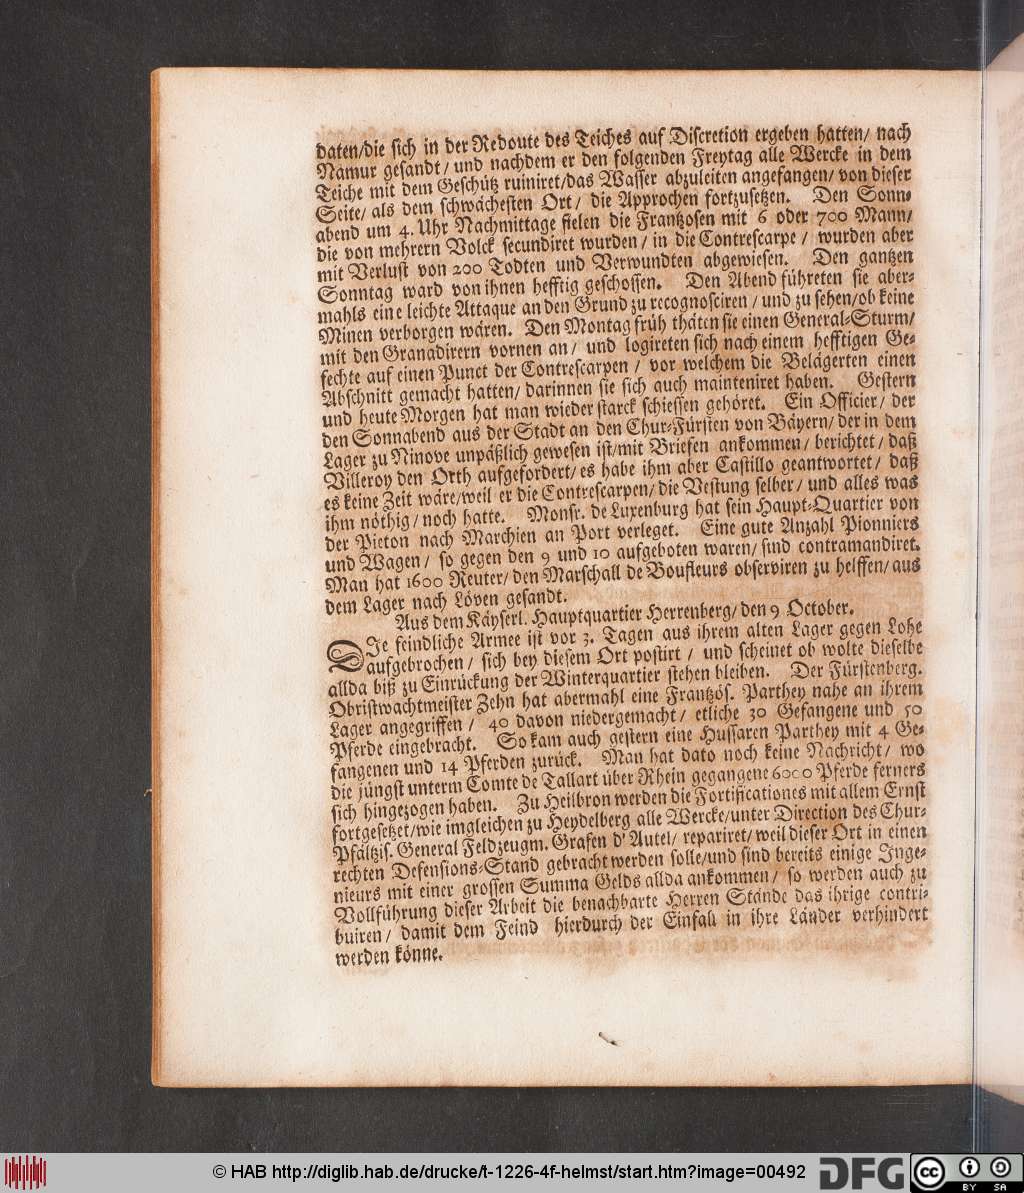 daten/die sich in der Redoute des Teiches auf Discretion ergeben hatten/ nach
Namur gesandt/ und nachdem er den folgenden Freytag alle Wercke in dem
Teiche mit dem Geschütz ruiniret/das Wasser abzuleiten angefangen/ von dieser
Seite/ als dem schwächesten Ort/ die Approchen fortzusetzen. Den Sonn-
abend um 4. Uhr Nachmittage fielen die Frantzosen mit 6 oder 700 Mann/
die von mehrern Volck secundiret wurden/ in die Contrescarpe/ wurden aber
mit Verlust von 200 Todten und Verwundten abgewiesen. Den gantzen
Sonntag ward von ihnen hefftig geschossen. Den Abend führeten sie aber-
mahls eine leichte Attaque an den Grund zu recognosciren/ und zu sehen/ob keine
Minen verborgen wären. Den Montag früh thäten sie einen General-Sturm/
mit den Granadirern vornen an/ und logireten sich nach einem hefftigen Ge-
fechte auf einen Punct der Contrescarpen/ vor welchem die Belägerten einen
Abschnitt gemacht hatten/ darinnen sie sich auch mainteniret haben. Gestern
und heute Morgen hat man wieder starck schiessen gehöret. Ein Officier/ der
den Sonnabend aus der Stadt an den Chur-Fürsten von Bäyern/ der in dem
Lager zu Ninove unpäßlich gewesen ist/mit Briefen ankommen/ berichtet/ daß
Villeroy den Orth aufgefordert/ es habe ihm aber Castillo geantwortet/ daß
es keine Zeit wäre/weil er die Contrescarpen/ die Vestung selber/ und alles was
ihm nöthig/ noch hatte. Monsr. de Luxenburg hat sein Haupt-Quartier von
der Pieton nach Marchien an Port verleget. Eine gute Anzahl Pionniers
und Wagen/ so gegen den 9 und 10 aufgeboten waren/ sind contramandiret.
Man hat 1600 Reuter/ den Marschall de Boufleurs observiren zu helffen/ aus
dem Lager nach Löven gesandt.
Aus dem Käyserl. Hauptquartier Herrenberg/ den 9 October.
DIe feindliche Armee ist vor 3. Tagen aus ihrem alten Lager gegen Lohe
aufgebrochen/ sich bey diesem Ort postirt/ und scheinet ob wolte dieselbe
allda biß zu Einrückung der Winterquartier stehen bleiben. Der Fürstenberg.
Obristwachtmeister Zehn hat abermahl eine Frantzös. Parthey nahe an ihrem
Lager angegriffen/ 40 davon niedergemacht/ etliche 30 Gefangene und 50
Pferde eingebracht. So kam auch gestern eine Hussaren Parthey mit 4 Ge-
fangenen und 14 Pferden zurück. Man hat dato noch keine Nachricht/ wo
die jüngst unterm Comte de Tallart über Rhein gegangene 6000 Pferde ferners
sich hingezogen haben. Zu Heilbron werden die Fortificationes mit allem Ernst
fortgesetzet/wie imgleichen zu Heydelberg alle Wercke/unter Direction des Chur-
Pfältzis. General Feldzeugm. Grafen d'Autel/ repariret/ weil dieser Ort in einen
rechten Defensions-Stand gebracht werden solle/und sind bereits einige Inge-
nieurs mit einer grossen Summa Gelds allda ankommen/ so werden auch zu
Vollführung dieser Arbeit die benachbarte Herren Stände das ihrige contri-
buiren/ damit dem Feind hierdurch der Einfall in ihre Länder verhindert
werden könne.
© HAB http://diglib.hab.de/drucke/t-1226-4f-helmst/start.htm?image=00492
DFG
cc BY SA